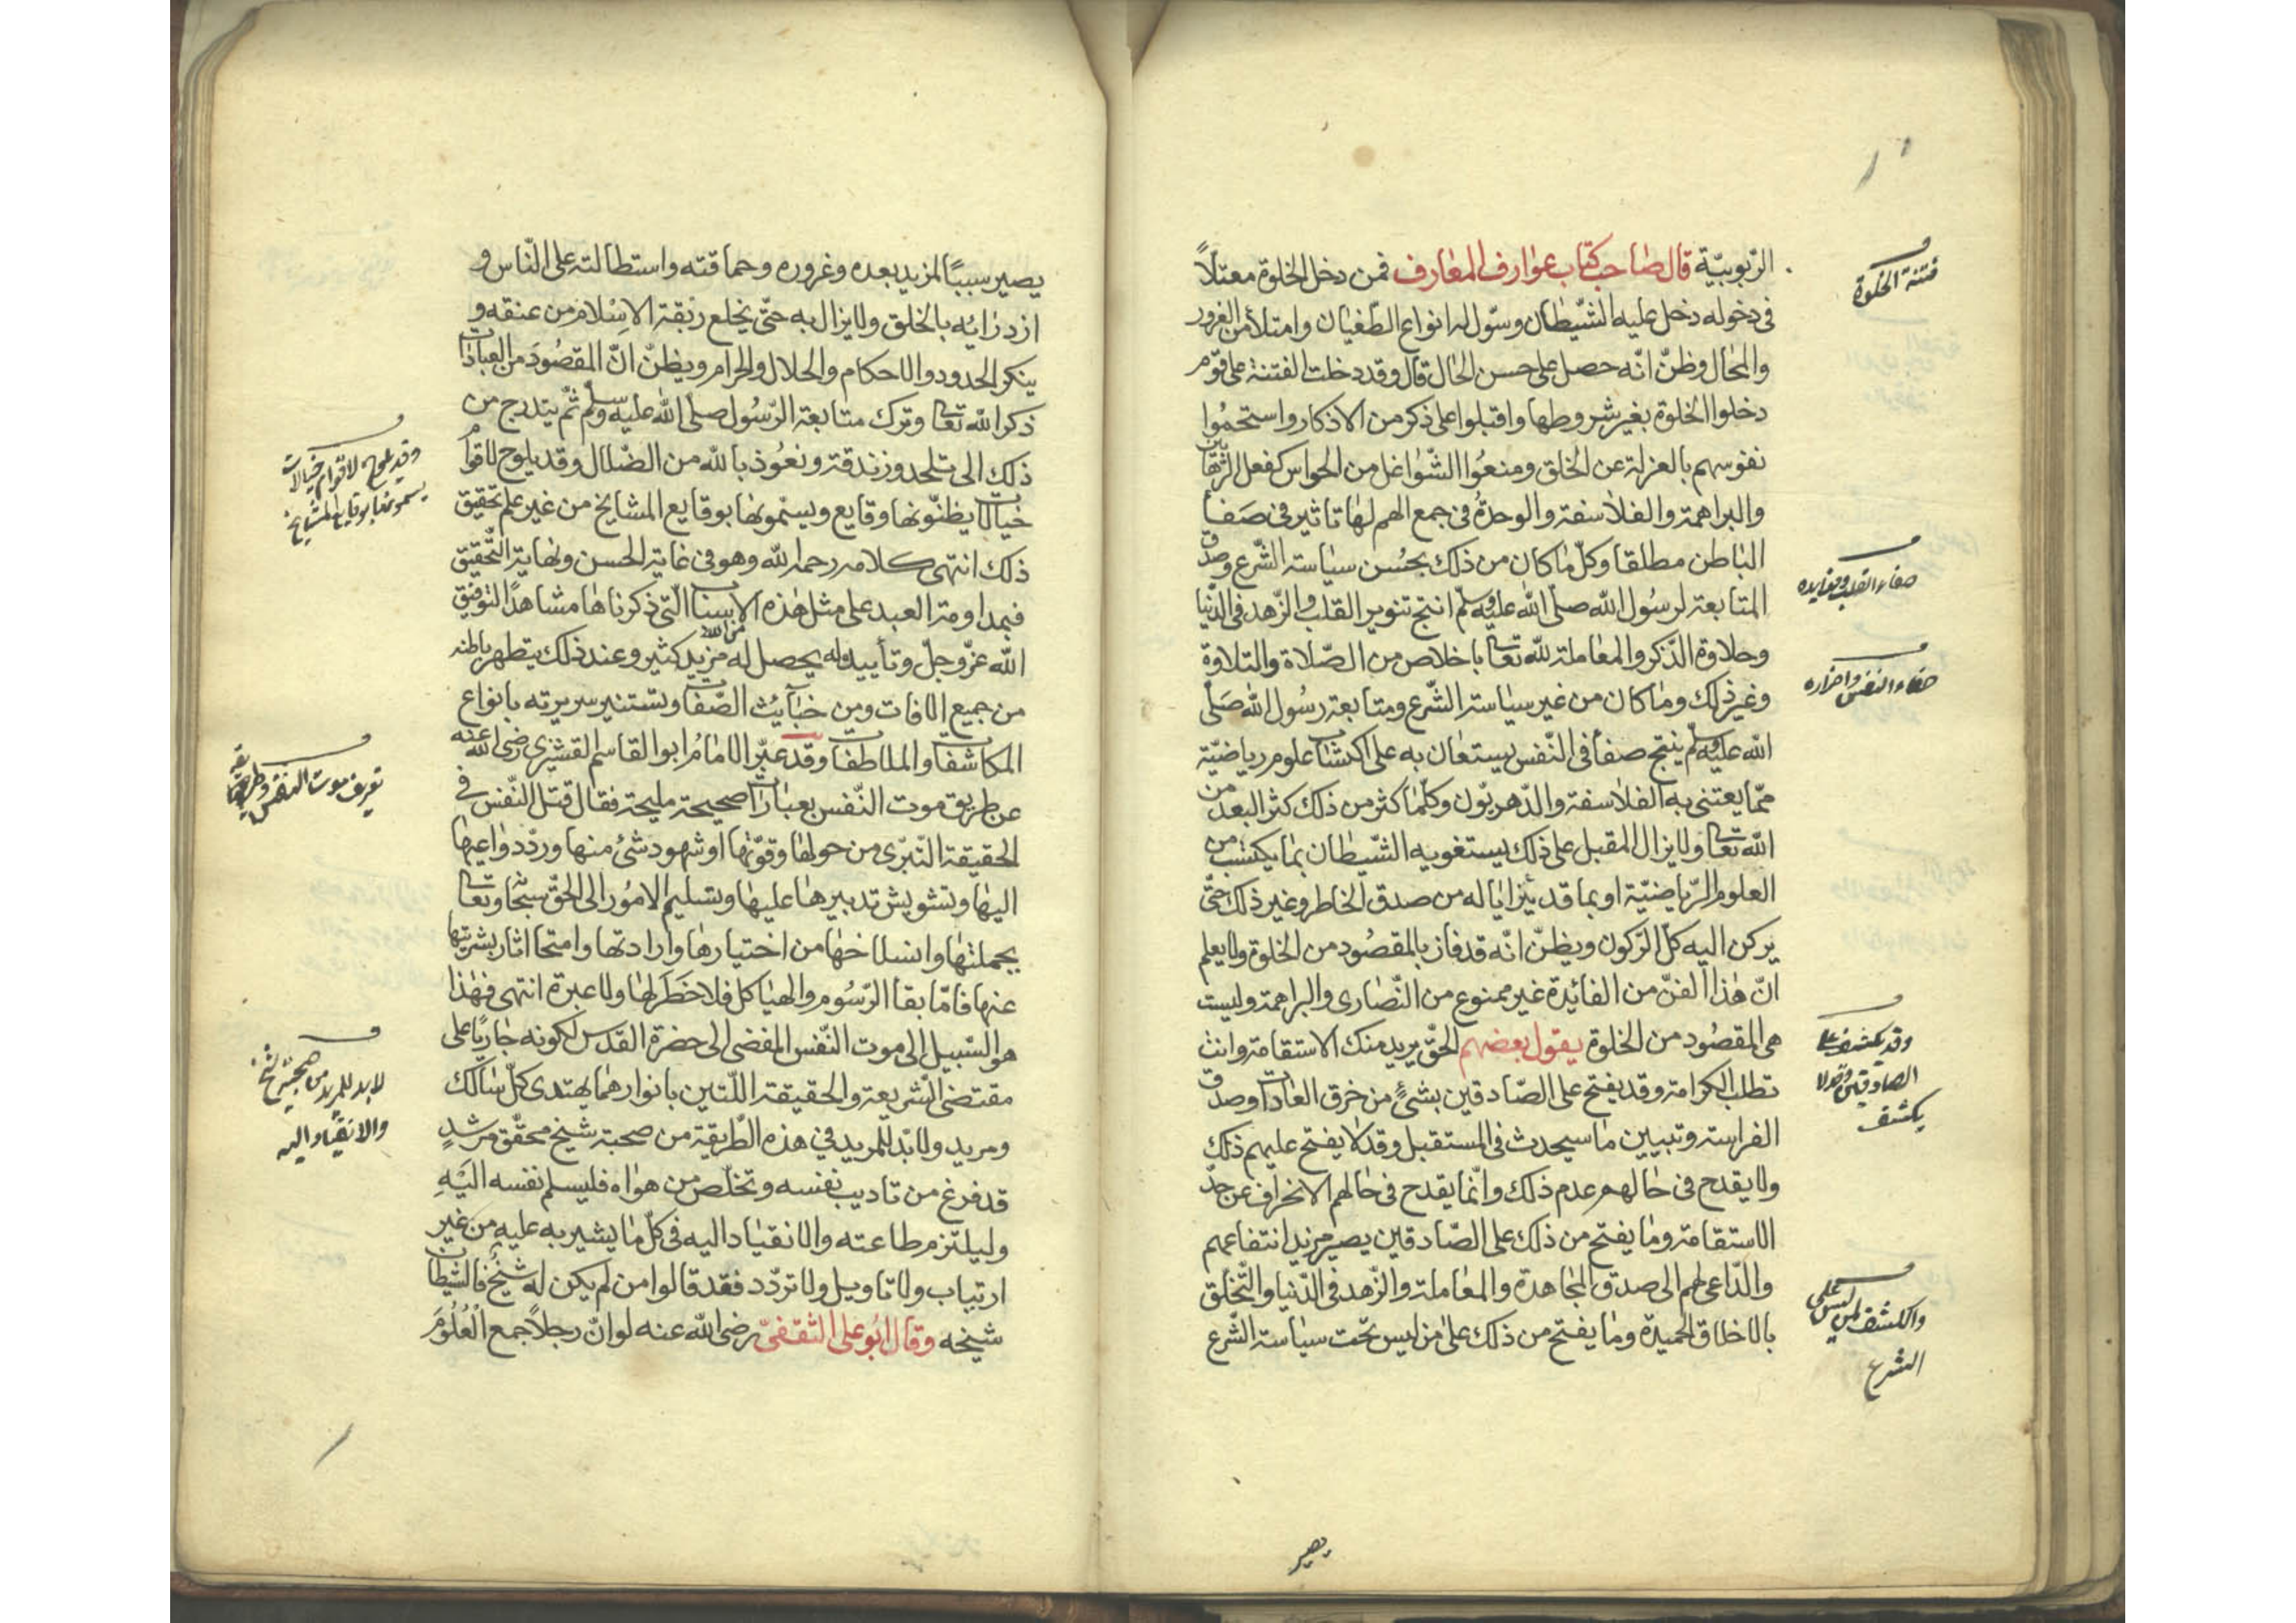 الرّبوبيّة قال صاحب كتاب عوارف المعارف فمن دخل الخلوة معتلاً
فى دخوله دخل عليه الشّيطان وسوّل له انواع الطّغيان وامتلأ من الغرور
والمحال وظنّ انّه حصل على حسن الحال قال وقد دخلت الفتنة على قوم
دخلوا الخلوة بغير شروطها واقبلوا على ذكر من الاذكار واستحمُوا
نفوسهم بالعزلة عن الخلق ومنعُوا الشّواغل من الحواس كفعل الرّهّابين
والبراهمة والفلاسفة والوحدةُ فى جمع الهم لها تاثير فى صَفأ
الباطن مطلقا وكلّ ما كان من ذلك بحُسن سياسة الشّرع وصدق
المتابعة لرسُول الله صلّى الله عليه وسلّم انتج تنوير القلب والزّهد فى الدّنيا
وحلاوة الذّكر والمعاملة لله تعالى باخلاص من الصّلاة والتلاوة
وغير ذلك وما كان من غير سياسة الشّرع ومتابعة رسُول الله صَلّى
الله عليه وسلّم ينتج صفأ فى النّفس يستعان به على اكتساب علوم رياضيّة
ممّا يعتنى به الفلاسفة والدّهريّون وكلّما كثر من ذلك كثر البعد من
الله تعالى ولا يزال المقبل على ذلك يستغويه الشّيطان بما يكتسب من
العلوم الرّياضيّة او بما قد يتزايا له من صدق الخاطر وغير ذلك حتّى
يركن اليه كلّ الرّكون ويظنّ انّه قد فاز بالمقصُود من الخلوة ولا يعلم
انّ هذا الفنّ من الفائدة غير ممنوع من النّصارى والبراهمة وليست
هى المقصُود من الخلوة يقول بعضهم الحقّ يريد منك الاستقامة وانت
تطلب الكرامة وقد يفتح على الصّادقين بشئٍ من خرق العادات وصدق
الفراسة وتبيين ما سيحدث فى المستقبل وقد لا يفتح عليهم ذلك
ولا يقدح فى حالهم عدم ذلك وانّما يقدح فى حالهم الانحراف عن حدّ
الاستقامة وما يفتح من ذلك على الصّادقين يصير مزيد انتفاعهم
والدّاعى لهم الى صدق المجاهدة والمعاملة والزّهد فى الدّنيا والتّخلق
بالاخلاق الحميدة وما يفتح من ذلك على من ليس تحت سياسة الشّرع
فتنة الخلوة
صفاء القلب وفوايده
صفاء النفس واضراره
وقد يكشف على
الصادقين وقد لا
يكشف
والكشف لمن ليس على
الشرع
يصير
يصير سببًا لمزيد بعده وغروره وحماقته واستطالته على النّاس و
ازدرائه بالخلق ولا يزال به حتّى يخلع ربقة الاسْلام من عنقه و
ينكر الحدود والاحكام والحلال والحرام ويظنّ انّ المقصُودَ من العبادات
ذكر الله تعالى وترك متابعة الرّسُول صلّى الله عليه وسلّم ثمّ يتدرج من
ذلك الى تلحد وزندقة ونعُوذ بالله من الضّلال وقد يلوح لاقوام
خيالات يظنّونها وقايع ويسمّونها بوقايع المشايخ من غير علم تحقيق
ذلك انتهى كلامه رحمه الله وهو فى غاية الحسن ونهاية التّحقيق
فبمداومة العبد على مثل هذه الاسباب التّى ذكرناها مشاهدًا لتوفيق
الله عزّ وجلّ وتأييده له يحصل له من الله مزيد كثير وعند ذلك يتطهر باطنه
من جميع الافات ومن خبآيث الصّفات وتستنير سريرته بانواع
المكاشفات والملاطفات وقد عبّر الامامُ ابو القاسم القشيرى رضى الله عنه
عن طريق موت النّفس بعبارات صحيحة مليحة فقال قتل النّفس فى
الحقيقة التّبرّى من حولها وقوّتها او شهود شئ منها وردّ دواعيها
اليها وتشويش تدبيرها عليها وتسليم الامُور الى الحقّ سبحانه وتعالى
بجملتها وانسلاخها من اختيارها وارادتها وامتحا اثار بشريّتها
عنها فامّا بقا الرّسُوم والهياكل فلا خَطَر لها ولا عبرة انتهى فهذا
هو السّبيل الى موت النّفس المفضى الى حضرة القدس لكونه جاريًا على
مقتضى الشّريعة والحقيقة اللّتين بانوارهما يهتدى كلّ سالك
ومريد ولا بدّ للمريد فى هذه الطّريقة من صحبة شيخ محقّق مرشدٍ
قد فرغ من تاديب نفسه وتخلّص من هواه فليسلم نفسه اليْهِ
وليلتزم طاعته والانقياد اليه فى كلّ ما يشير به عليه من غير
ارتياب ولا تاويل ولا تردّد فقد قالوا من لم يكن له شيخٌ فالشيطان
شيخه وقال ابُو على الثّقفىّ رضى الله عنه لو انّ رجلاً جمع الْعُلُومَ
وقد يلوح لاقوام خيالات
يسمونها بوقايع المشايخ
تعريف موت النفس وطريقة
لابد للمريد من صحبة شيخ
والانقياد اليه